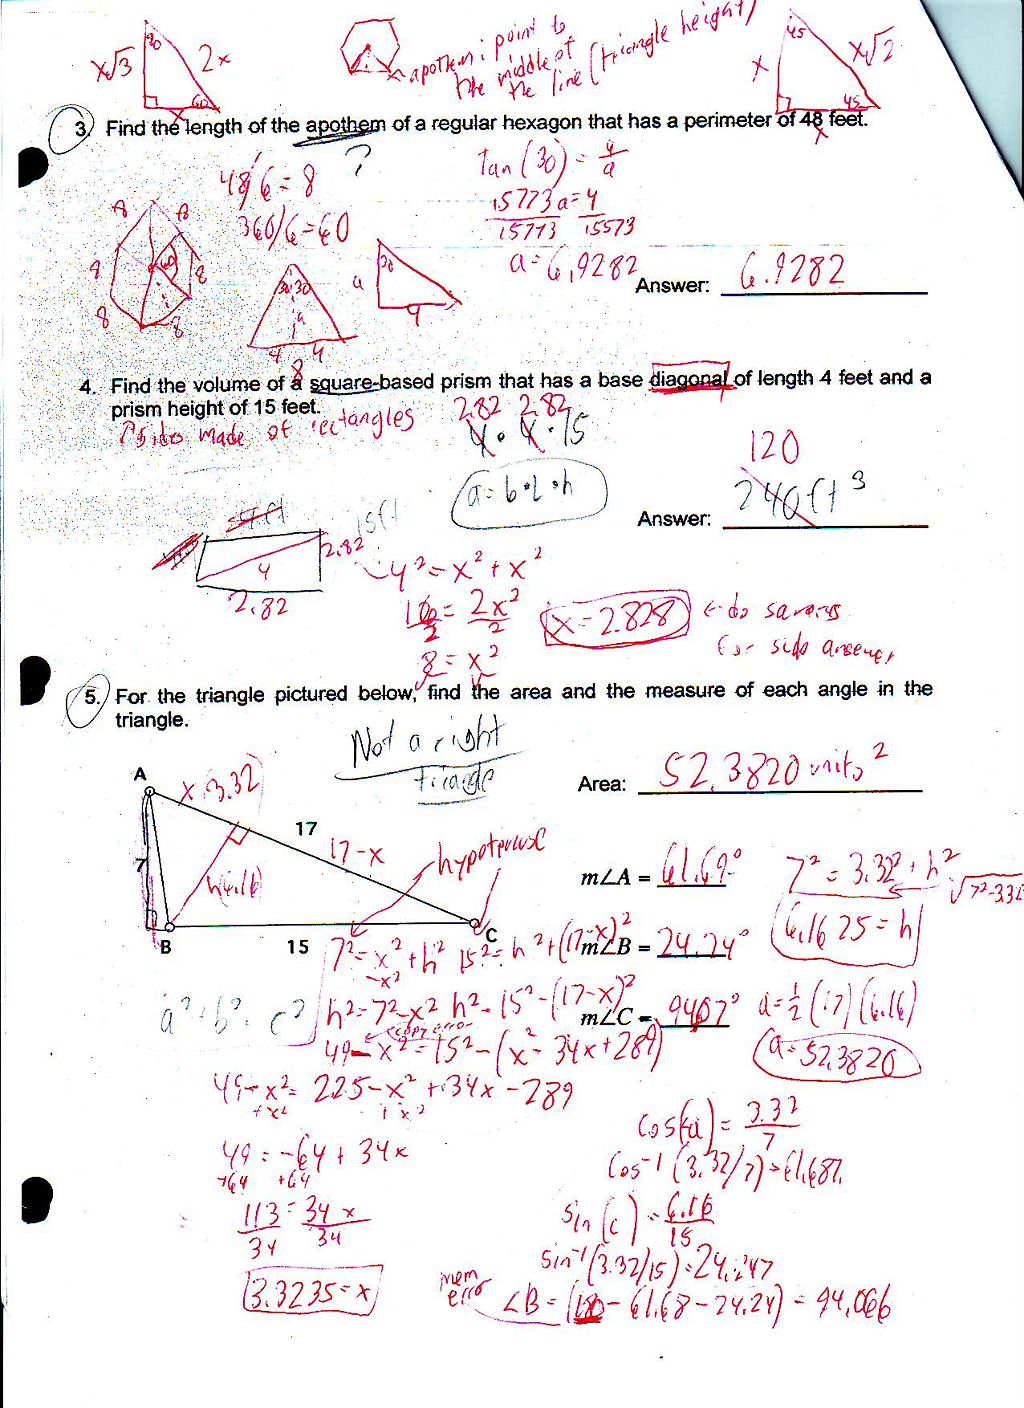 x√3
30
2x
60
x
apothem: point to
the middle of
the line (triangle height)
45
x
x√2
45
x
3. Find the length of the apothem of a regular hexagon that has a perimeter of 48 feet.
?
48/6 = 8
360/6 = 60
Tan(30) = 4/a
.5773a = 4
.5773 .5573
a = 6.9282
Answer: 6.9282
8 8
8 60 8
8 8
30 30
a
4 4
8
30
a
4
4. Find the volume of a square-based prism that has a base diagonal of length 4 feet and a
prism height of 15 feet.
↑ sides made of rectangles
2.82 2.82
4 • 4 • 15
a = b • l • h
120
240 ft 3
Answer:
15ft
2.82
4
2.82
4² = x² + x²
16 = 2x²
2 2
8 = x²
x = 2.828
← do
for side
5. For the triangle pictured below, find the area and the measure of each angle in the
triangle.
Not a right
triangle
Area: 52.3820 units²
A
x (3.32)
17
17-x
hypotenuse
7
h(6.16)
B
15
C
m∠A = 61.69°
7² = 3.32² + h²
√7²-3.32
6.1625 = h
m∠B = 24.24°
m∠C = 94.07°
a = ½ (17) (6.16)
a = 52.3820
a² + b² = c²
7² = x² + h² 15² = h² + (17-x)²
-x²
h² = 7² - x² h² = 15² - (17-x)²
← copy error
49 - x² = 15² - (x² - 34x + 289)
49 - x² = 225 - x² + 34x - 289
+x² + x²
49 = -64 + 34x
+64 +64
113 = 34x
34 34
3.3235 = x
cos(a) = 3.32
7
cos⁻¹(3.32/7) = 61.687
sin(c) = 6.16
15
sin⁻¹(3.32/15) = 24.247
mem
error
∠B = (180 - 61.68 - 24.24) = 94.066